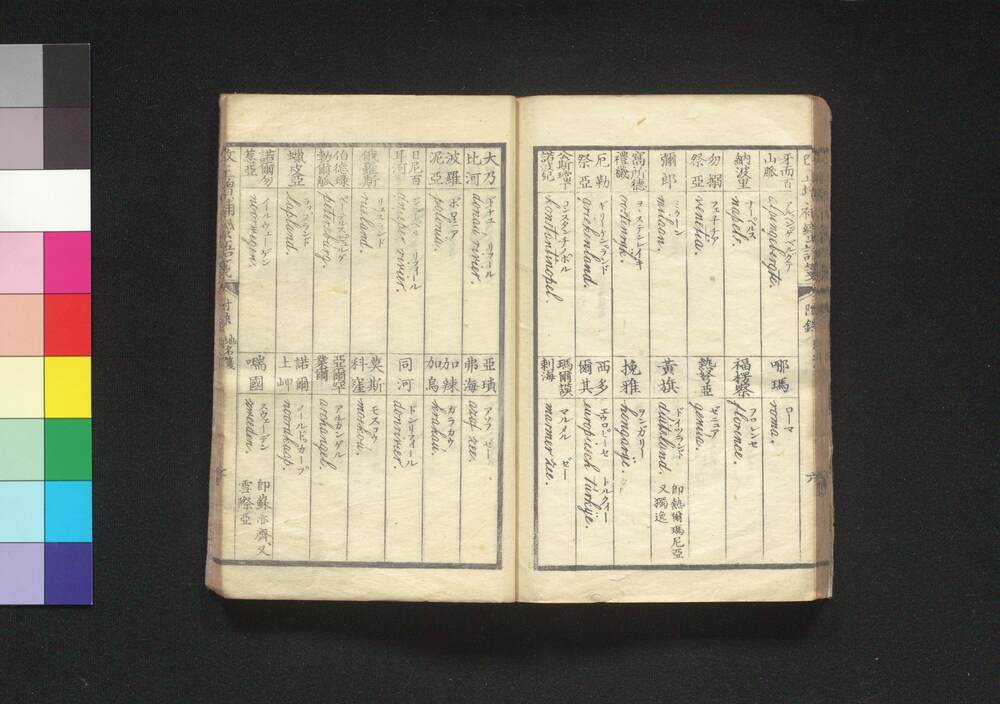 牙而百
山脈
アペンゲベルグテ
apengebergte.
納波里
ナーペルス
napels.
勿搦
祭亞
フェネチア
venetia.
彌郎
ミラーン
milaan.
窩所德
禮畿
ヲヽステンレイキ
oostenryk.
厄勒
祭亞
ギリーケンランド
griekenland.
公斯璫丁
諾波兒
コンスタンチノポル
konstantinopel.
哪瑪
ローマ
roma.
福樓祭
フロレンセ
florence.
熱弩亞
ゼニュア
genua.
黃旗
ドイツランド
duitsland.
即熱爾瑪尼亞
又獨逸
挽雅
ホンガリー
hongarije.
西多
爾其
エウロピーセ トルケイー
europisch turkije.
瑪爾謨
刺海
マルメル ゼー
marmer zee.
大乃
比河
ドナユ リフィール
donau rivier.
波羅
泥亞
ポロニア
polonia.
日尼百
耳河
リフィール
dnieper rivier.
俄羅斯
リュスランド
rusland.
伯德琭
勃爾孤
ペートルスビュルグ
petersburg.
蠟皮亞
ラップランド
lapland.
諾爾勿
惹亞
ノールウェーゲン
noorwegen.
亞瑣
弗海
アソフ ゼー
azof zee.
加辣
加烏
カラカウ
krakau.
同河
ドンリフィール
donrivier.
莫斯
科窪
モスコウ
moskou.
亞爾罕
葉爾
アルカンゲル
archangel.
諾爾
上岬
ノールドカープ
noordkaap.
喘國
スウェーデン
zweeden.
即蘇亦齊、又
雪際亞